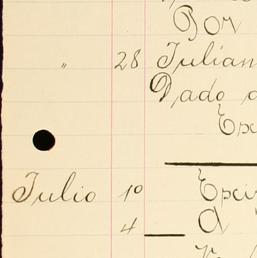 Por
" 28 Julian
Dado a
Epci
Julio 10 Epci
4 A